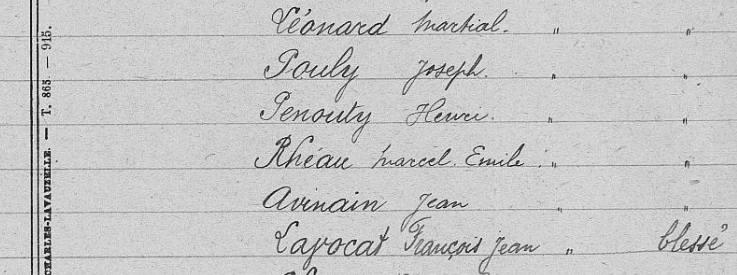 Léonard Martial. " "
Pouly Joseph. " "
Penouty Henri. " "
Rhéau Marcel. Emile. " "
Avinain Jean " "
Lavocat François Jean " blessé
CHARLES-LAVAUZELLE. — T. 865. — 915.